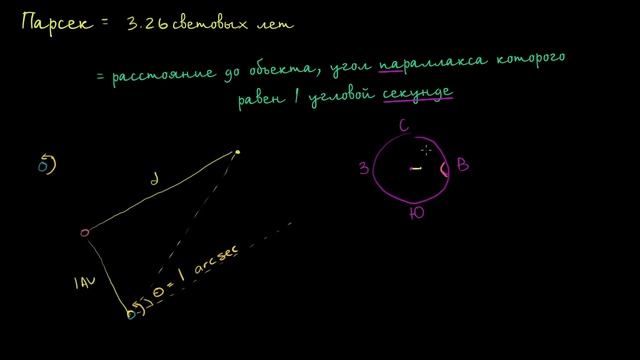 Парсек = 3.26 световых лет
= расстояние до объекта, угол параллакса которого
равен 1 угловой секунде
С
З
В
Ю
d
1AU
θ = 1 arcsec